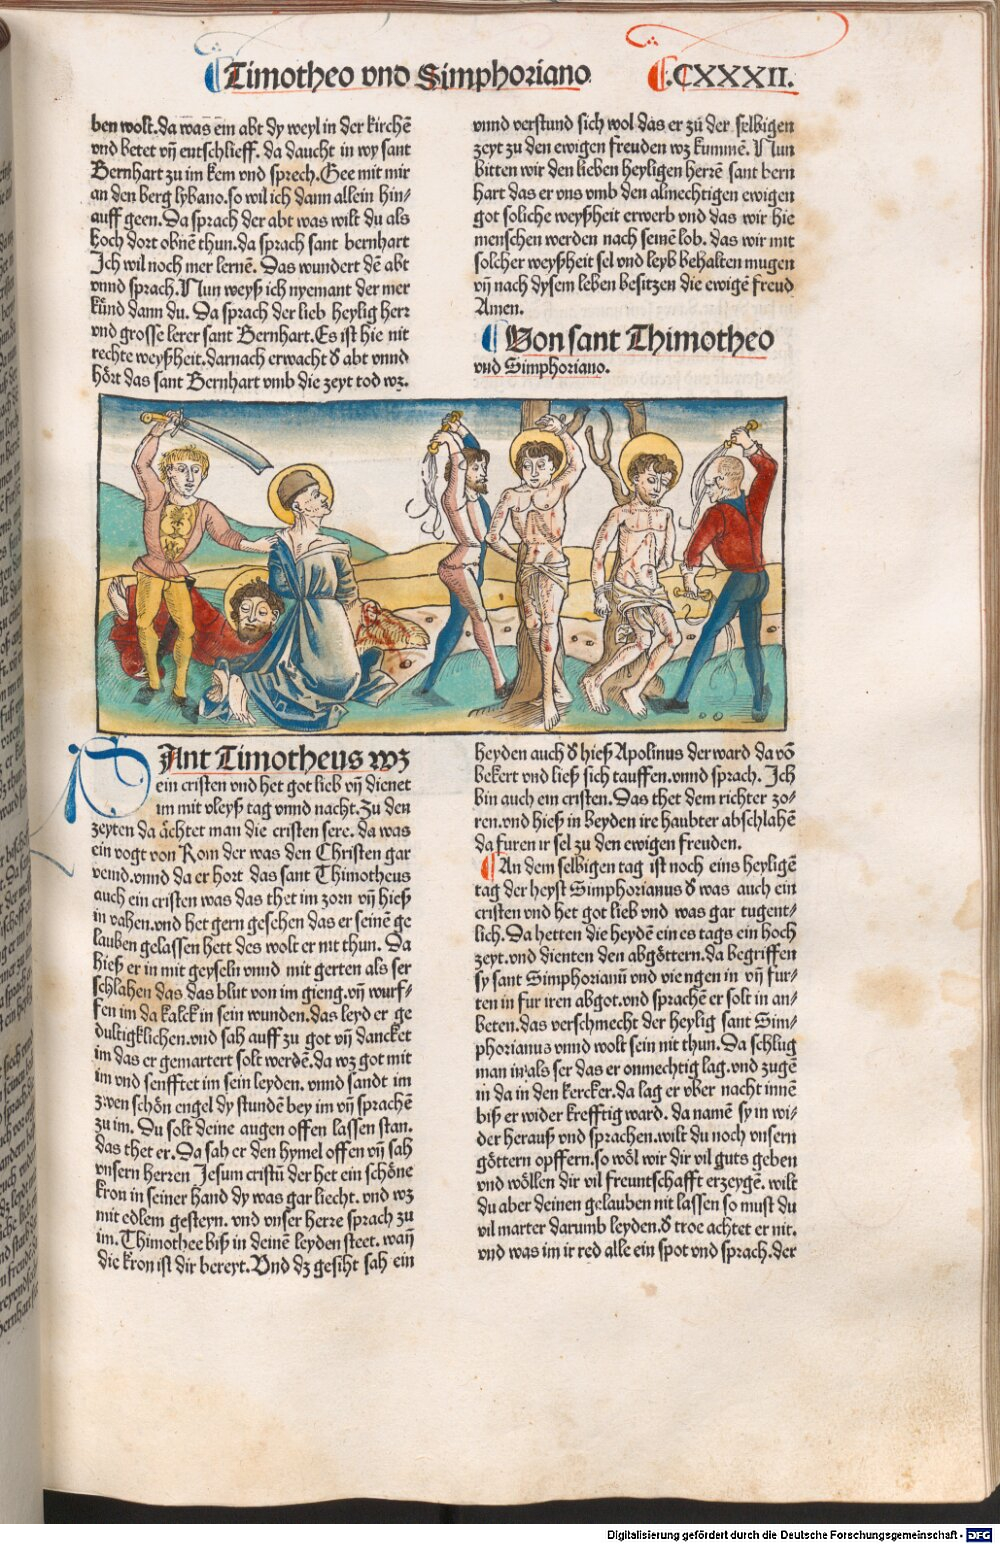 Timotheo vnd Simphoriano
.CXXXII.
ben wolt.da was ein abt dy weyl in der kirchē
vnd betet vn̄ entschlieff. da daucht in wy sant
Bernhart zu im kem vnd sprech.Gee mit mir
an den berg lybano.so wil ich dann allein hin⸗
auff geen.Da sprach der abt was wilt du als
hoch dort obnē thun.da sprach sant bernhart
Ich wil noch mer lernē. Das wundert dē abt
vnnd sprach.Nun weyß ich nyemant der mer
künd dann du. Da sprach der lieb heylig herr
vnd grosse lerer sant Bernhart.Es ist hie nit
rechte weyßheit.darnach erwacht d̕ abt vnnd
hört das sant Bernhart vmb die zeyt tod wz.
vnnd verstund sich wol das er zů der selbigen
zeyt zu den ewigen freuden wz kummē. Nun
bitten wir den lieben heyligen herrē sant bern
hart das er vns vmb den almechtigen ewigen
got soliche weyßheit erwerb vnd das wir hie
menschen werden nach seinē lob. das wir mit
solcher weyßheit sel vnd leyb behalten mugen
vn̄ nach dysem leben besitzen die ewigē freud
Amen.
Von sant Thimotheo
vnd Simphoriano.
SAnt Timotheus wz
ein cristen vnd het got lieb vn̄ dienet
im mit vleyß tag vnnd nacht.Zu den
zeyten da ächtet man die cristen sere. da was
ein vogt von Rom der was den Christen gar
veind.vnnd da er hort das sant Thimotheus
auch ein cristen was das thet im zorn vn̄ hieß
in vahen.vnd het gern gesehen das er seinē ge
lauben gelassen hett des wolt er nit thun. Da
hieß er in mit geyseln vnnd mit gerten als ser
schlahen das das blut von im gieng.vn̄ wurf⸗
fen im da kalck in sein wunden.das leyd er ge
dultigklichen.vnd sah auff zu got vn̄ dancket
im das er gemartert solt werdē.da wz got mit
im vnd senfftet im sein leyden. vnnd sandt im
zwen schön engel dy stundē bey im vn̄ sprachē
zu im. Du solt deine augen offen lassen stan.
das thet er.Da sah er den hymel offen vn̄ sah
vnsern herren Jesum cristū der het ein schöne
kron in seiner hand dy was gar liecht. vnd wz
mit edlem gesteyn. vnd vnser herre sprach zu
im.Thimothee biß in deinē leyden steet. wan̄
die kron ist dir bereyt.Vnd dz gesiht sah ein
heyden auch d̕ hieß Apolinus der ward da vō
bekert vnd ließ sich tauffen.vnnd sprach. Ich
bin auch ein cristen.Das thet dem richter zo⸗
ren.vnd hieß in beyden ire haubter abschlahē
da furen ir sel zu den ewigen freuden.
An dem selbigen tag ist noch eins heyligē
tag der heyst Simphorianus d̕ was auch ein
cristen vnd het got lieb vnd was gar tugent⸗
lich.Da hetten die heydē ein es tags ein hoch
zeyt.vnd dienten den abgöttern.da begriffen
sy sant Simphorianū vnd vie ngen in vn̄ fur⸗
ten in fur iren abgot.vnd sprachē er solt in an⸗
beten.das verschmecht der heylig sant Sim⸗
phorianus vnnd wolt sein nit thun.Da schlug
man in als ser das er onmechtig lag.vnd zugē
in da in den kercker.da lag er vber nacht innē
biß er wider krefftig ward. da namē sy in wi⸗
der herauß vnd sprachen.wilt du noch vnsern
göttern opffern.so wöl wir dir vil guts geben
vnd wöllen dir vil freuntschafft erzeygē. wilt
du aber deinen gelauben nit lassen so must du
vil marter darumb leyden.d̕ troe achtet er nit.
vnd was im ir red alle ein spot vnd sprach.der
Digitalisierung gefördert durch die Deutsche Forschungsgemeinschaft - DFG